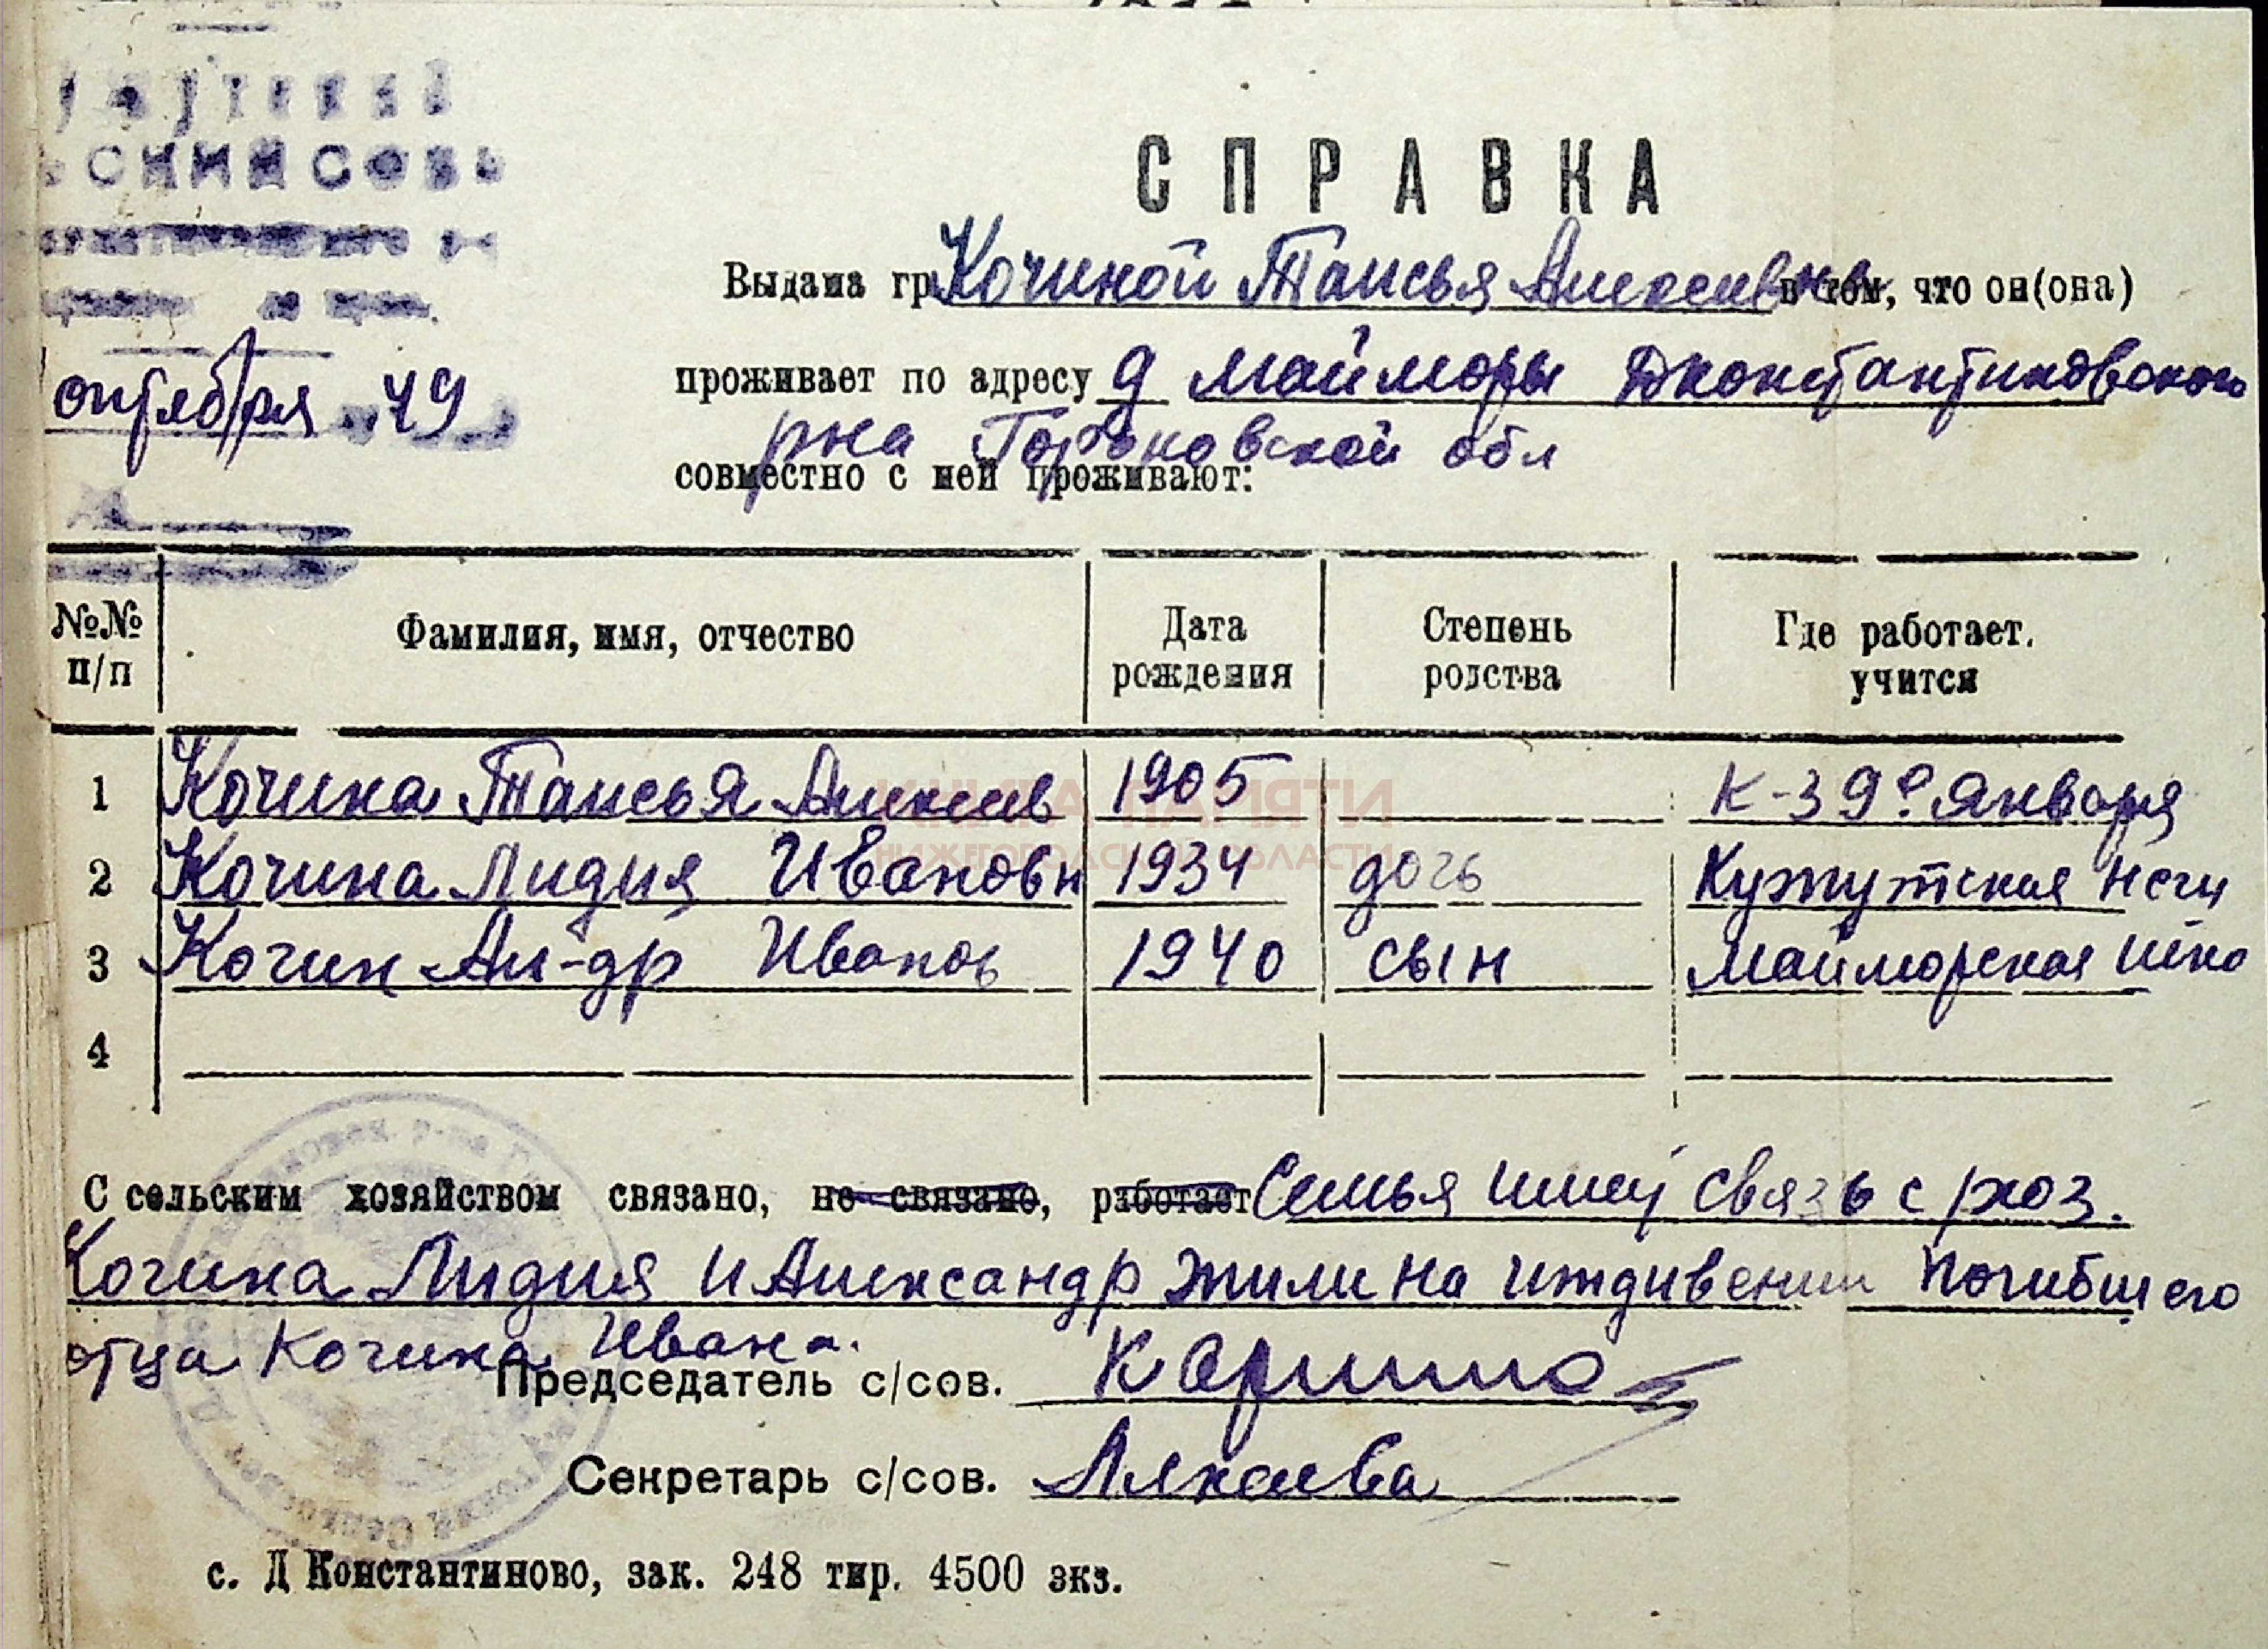 СПРАВКА
Выдана гр. Кочиной Таисья Алексеевне в том, что он(она)
октября 49
проживает по адресу д Маймары Дконстантиновского
рна Горьковской обл
совместно с ней проживают:
№№ п/п Фамилия, имя, отчество Дата рождения Степень родства Где работает. учится
1 Кочина Таисья Алексеев 1905 К-з 9е Января
2 Кочина Лидия Ивановн 1934 дочь Кужутская нсш
3 Кочин Ал-др Иванов 1940 сын Майморская шко
4
С сельским хозяйством связано, не связано, работает Семья имеу связь с/хоз.
Кочина Лидия и Александр жили на иждивении погибшего
отца Кочина Ивана.
Председатель с/сов.
Секретарь с/сов.
с. Д Константиново, зак. 248 тир. 4500 экз.
КНИГА ПАМЯТИ
НИЖЕГОРОДСКОЙ ОБЛАСТИ